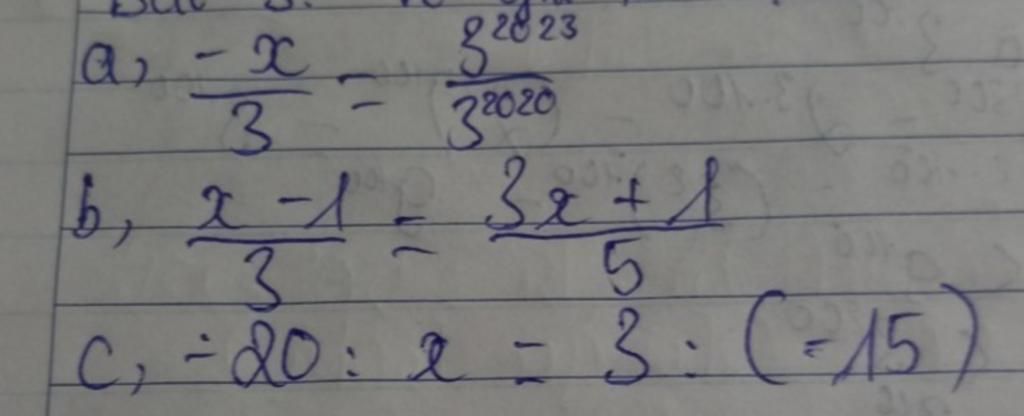 a, -x/3 = 3^2023/3^2020
b, x-1/3 = 3x+1/5
c, -20 : x = 3 : (-15)